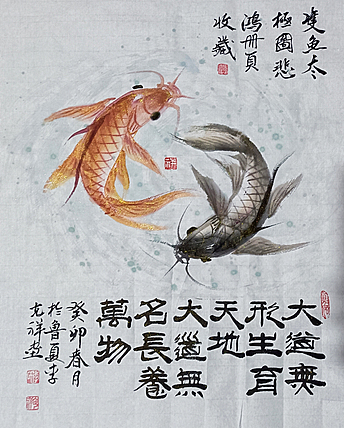 雙魚太
極圖悲
鴻册頁
收藏
大道無
形生育
天地
大道無
名長養
萬物
癸卯春月
於魯夏李
克祥畫